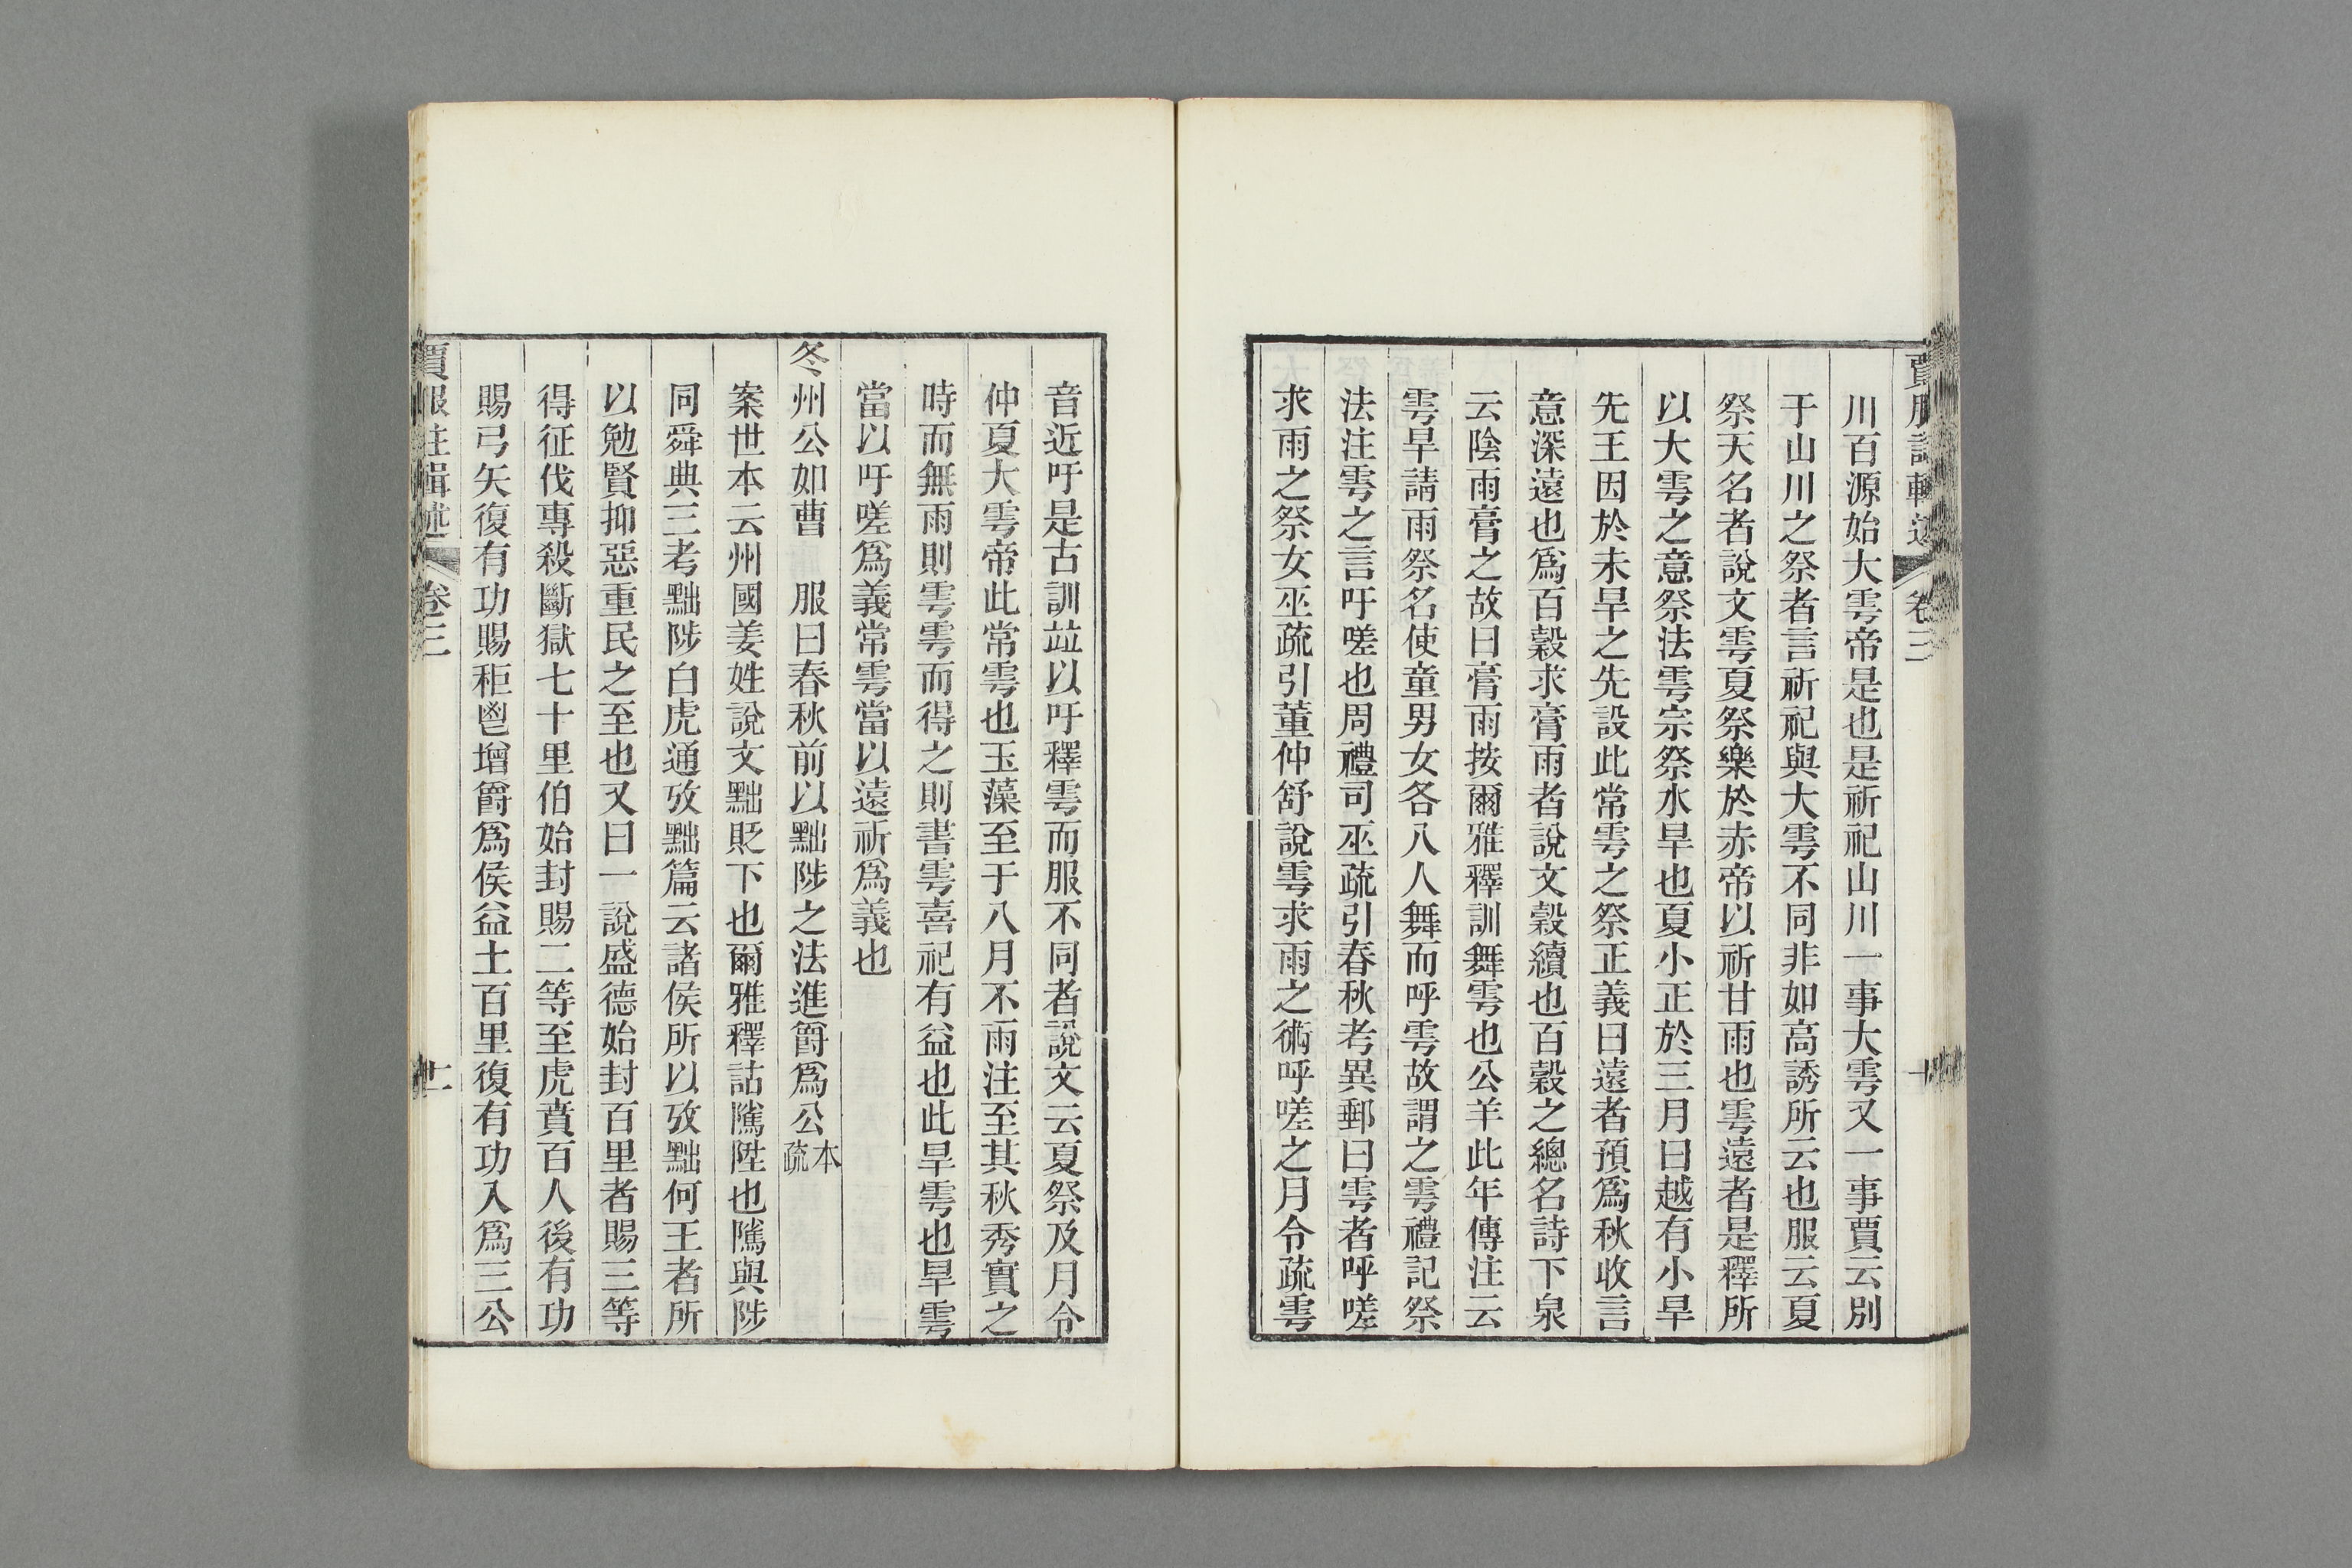 賈服註輯述 卷三 十
川百源始大雩帝是也是祈祀山川一事大雩又一事賈云別
于山川之祭者言祈祀與大雩不同非如高誘所云也服云夏
祭天名者說文雩夏祭樂於赤帝以祈甘雨也雩遠者是釋所
以大雩之意祭法雩宗祭水旱也夏小正於三月曰越有小旱
先王因於未旱之先設此常雩之祭正義曰遠者預爲秋收言
意深遠也爲百穀求膏雨者說文穀續也百穀之總名詩下泉
云陰雨膏之故曰膏雨按爾雅釋訓舞雩也公羊此年傳注云
雩旱請雨祭名使童男女各八人舞而呼雩故謂之雩禮記祭
法注雩之言吁嗟也周禮司巫疏引春秋考異郵曰雩者呼嗟
求雨之祭女巫疏引董仲舒說雩求雨之術呼嗟之月令疏雩
音近吁是古訓竝以吁釋雩而服不同者說文云夏祭及月令
仲夏大雩帝此常雩也玉藻至于八月不雨注至其秋秀實之
時而無雨則雩雩而得之則書雩喜祀有益也此旱雩也旱雩
當以吁嗟爲義常雩當以遠祈爲義也
冬州公如曹 服曰春秋前以黜陟之法進爵爲公本疏
案世本云州國姜姓說文黜貶下也爾雅釋詁隲陞也隲與陟
同舜典三考黜陟白虎通攷黜篇云諸侯所以攷黜何王者所
以勉賢抑惡重民之至也又曰一說盛德始封百里者賜三等
得征伐專殺斷獄七十里伯始封賜二等至虎賁百人後有功
賜弓矢復有功賜秬鬯增爵爲侯益土百里復有功入爲三公
賈服註輯述 卷三 十一